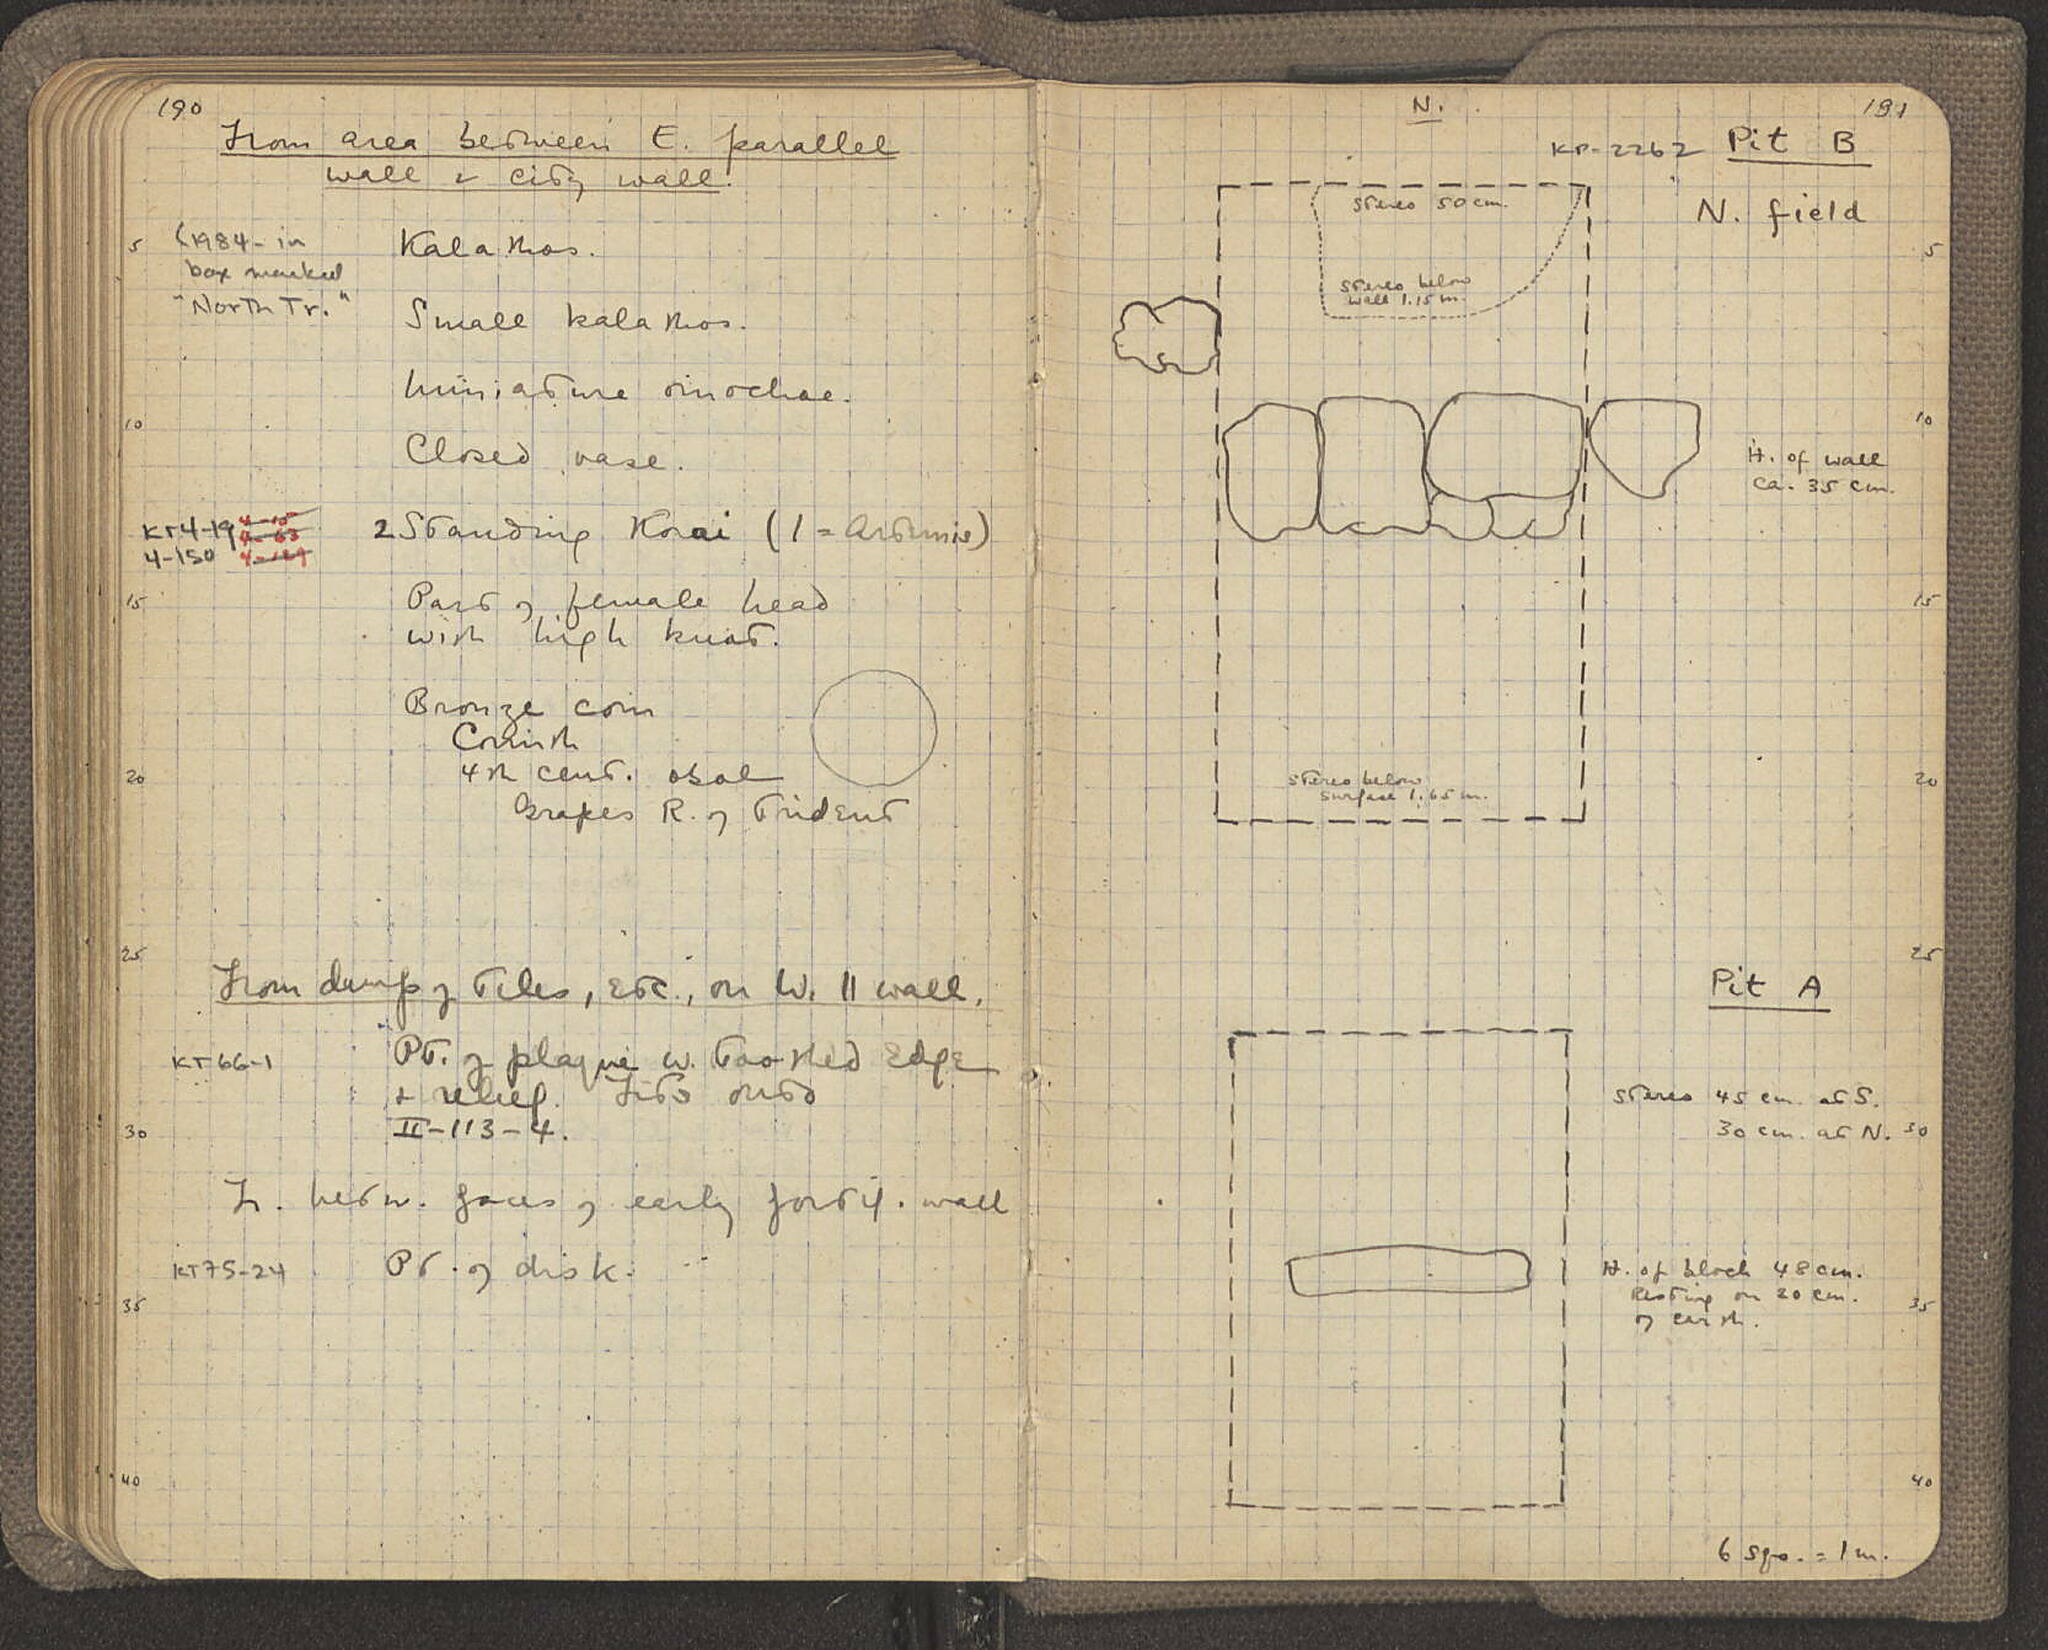 190
From area between E. parallel
wall & city wall.
(1984 - in
box marked
"North Tr."
5
Kalathos.
Small kalathos.
Miniature oinochoe.
10
Closed vase.
KT4-19
4-150
2 Standing Korai (1 = Artemis)
15
Part of female head
with high knot.
Bronze coin
Corinth
20
4th cent. obol
Grapes R. of Trident
25
From dump of tiles, etc., on W. || wall.
KT66-1
Pt. of plaque w. toothed edge
& relief. Fits onto
30
II-113-4.
F. betw. faces of early fortif. wall
KT75-24
Pt. of disk.
35
40
N.
191
KP-2262 Pit B
N. field
stereo 50 cm.
5
stereo below
wall 1.15 m.
10
H. of wall
ca. 35 cm.
15
20
stereo below
surface 1.65 m.
25
Pit A
stereo 45 cm. at S.
30 cm. at N.
30
H. of block 48 cm.
Resting on 20 cm.
of earth.
35
40
6 sqs. = 1 m.